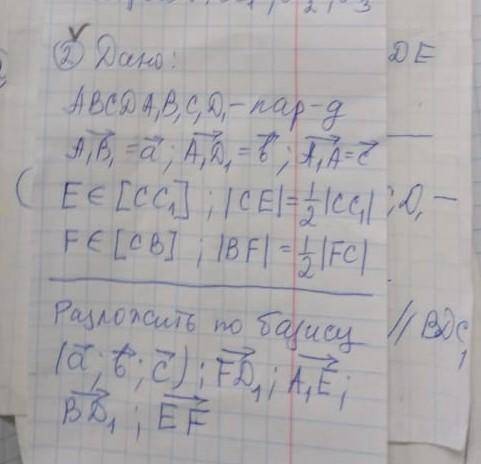 ② Дано: DE
ABCDA₁B₁C₁D₁ – пар-д
A₁B₁⃗ = a⃗ ; A₁D₁⃗ = b⃗ ; A₁A⃗ = c⃗
E ∈ [CC₁] ; |CE| = 1/2 |CC₁| ; D₁ –
F ∈ [CB] ; |BF| = 1/2 |FC|
Разложить по базису // BDC₁
(a⃗ ; b⃗ ; c⃗) ; FD₁⃗ ; A₁E⃗ ;
BD₁⃗ ; EF⃗